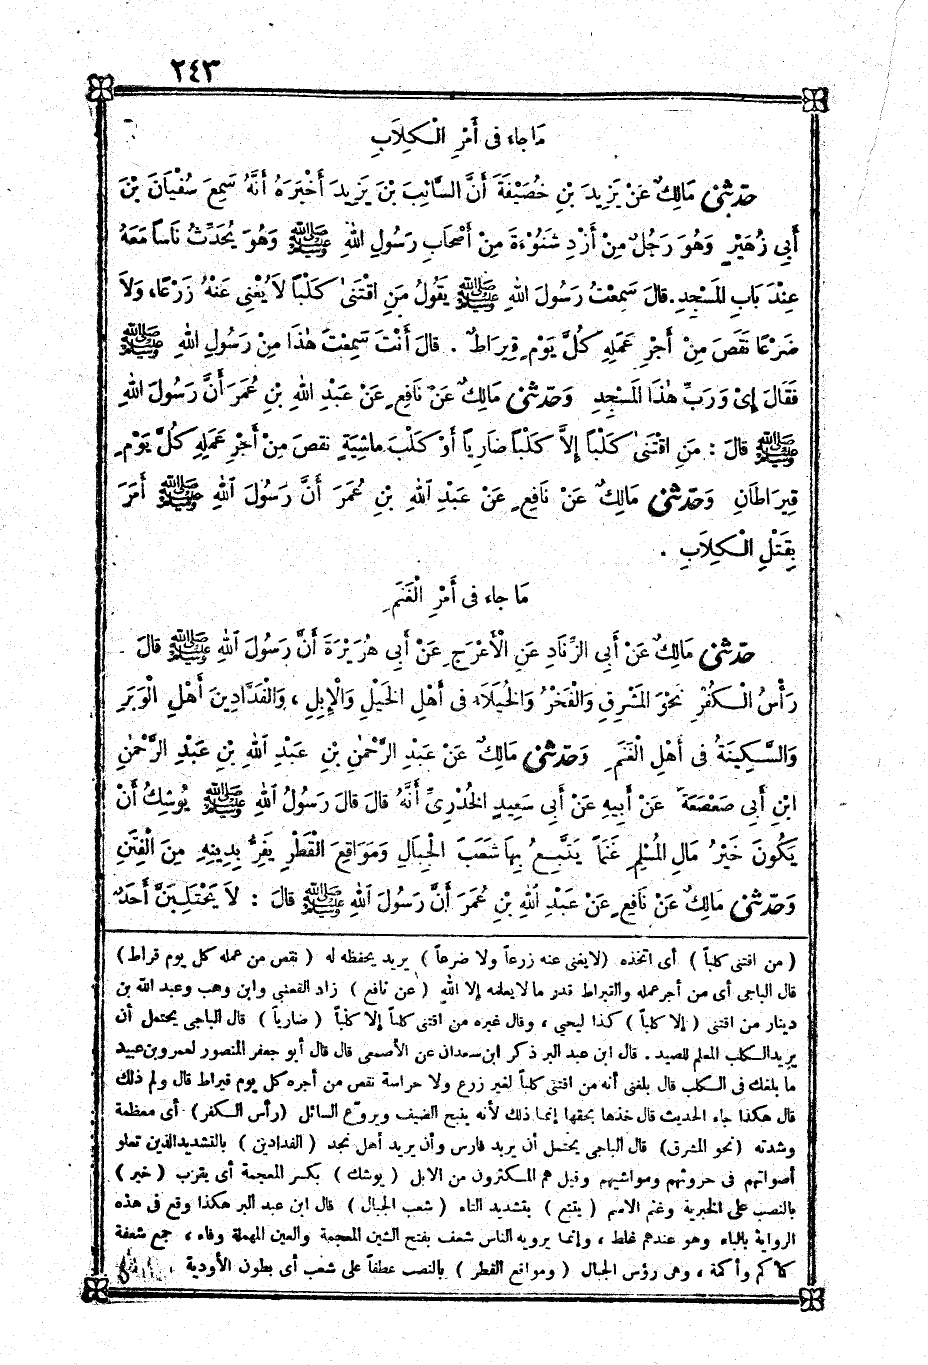 ٢٤٣
مَا جاء فى أَمْرِ الْـكِلَابِ
حَدّثنى مَالِكٌ عَنْ يَزِيدَ بْنِ خُصَيْفَةَ أَنَّ السَّائِبَ بْنَ يَزِيدَ أَخْبَرَهُ أَنَّهُ سَمِعَ سُفْيَانَ بْنَ
أَبِي زُهَيْرٍ وَهُوَ رَجُلٌ مِنْ أَزْدِ شَنُوءَةَ مِنْ أَصْحَابِ رَسُولِ اللهِ ﷺ وَهُوَ يُحَدِّثُ نَاسًا مَعَهُ
عِنْدَ بَابِ المَسْجِدِ. قالَ سَمِعْتُ رَسُولَ اللهِ ﷺ يَقُولُ مَنِ اقْتَنَىٰ كَلْبًا لاَ يُغْنِى عَنْهُ زَرْعًا، وَلاَ
ضَرْعًا نَقَصَ مِنْ أَجْرِ عَمَلِهِ كُلَّ يَوْمٍ قِيرَاطٌ . قالَ أَنْتَ سَمِعْتَ هٰذَا مِنْ رَسُولِ اللهِ ﷺ
فَقَالَ إِىْ وَرَبِّ هٰذَا المَسْجِدِ وَحَدّثنى مَالِكٌ عَنْ نَافِعٍ عَنْ عَبْدِ اللهِ بْنِ عُمَرَ أَنَّ رَسُولَ اللهِ
ﷺ قالَ : مَنِ اقْتَنَىٰ كَلْبًا إِلاَّ كَلْبًا ضَارِياً أَوْ كَلْبَ مَاشِيَةٍ نَقصَ مِنْ أَجْرِ عَمَلِهِ كُلَّ يَوْمٍ
قِيرَاطَانِ وَحَدّثنى مَالِكٌ عَنْ نَافِعٍ عَنْ عَبْدِ اللهِ بْنِ عُمَرَ أَنَّ رَسُولَ اللهِ ﷺ أَمَرَ
بِقَتْلِ الْـكِلَابِ .
مَا جاء فى أَمْرِ الْغَنَمِ
حَدّثنى مَالِكٌ عَنْ أَبِي الزِّنَادِ عَنِ الْأَعْرَجِ عَنْ أَبِي هُرَيْرَةَ أَنَّ رَسُولَ اللهِ ﷺ قالَ
رَأْسُ الْـكُفْرِ نَحْوَ المَشْرِقِ وَالْفَخْرُ وَالْخُيَلَاءُ فى أَهْلِ الْخَيْلِ وَالْإِبِلِ ، وَالْفَدَّادِينَ أَهْلِ الْوَبَرِ
وَالسَّكِينَةُ فى أَهْلِ الْغَنَمِ وَحَدّثنى مَالِكٌ عَنْ عَبْدِ الرَّحْمٰنِ بْنِ عَبْدِ اللهِ بْنِ عَبْدِ الرَّحْمٰنِ
ابْنِ أَبِي صَعْصَعَةَ عَنْ أَبِيهِ عَنْ أَبِي سَعِيدٍ الْخُدْرِىِّ أَنَّهُ قالَ قالَ رَسُولُ اللهِ ﷺ يُوشِكُ أَنْ
يَكُونَ خَيْرُ مَالِ المُسْلِمِ غَنَماً يَتَّبِعُ بِهَا شَعَبَ الْجِبَالِ وَمَوَاقِعَ الْقَطْرِ يَفِرُّ بِدِينِهِ مِنَ الْفِتَنِ
وَحَدّثنى مَالِكٌ عَنْ نَافِعٍ عَنْ عَبْدِ اللهِ بْنِ عُمَرَ أَنَّ رَسُولَ اللهِ ﷺ قالَ : لاَ يَحْتَلِبَنَّ أَحَدٌ
( من اقتنى كلباً ) أى اتخذه (لايغنى عنه زرعاً ولا ضرعاً ) يريد يحفظه له ( نقص من عمله كل يوم قراط)
قال الباجى أى من أجر عمله والقيراط قدر ما لا يعلمه إلا الله ( عن نافع ) زاد القعنبى وابن وهب وعبد الله بن
دينار من اقتنى ( إلا كلباً ) كذا ليحيى ، وقال غيره من اقتنى كلباً إلا كلباً ( ضارياً ) قال الباجى يحتمل أن
يريد الـكلب المعلم للصيد . قال ابن عبد البر ذكر ابن سعدان عن الأصمعى قال قال أبو جعفر المنصور لعمرو بن عبيد
ما بلغك فى الـكلب قال بلغنى أنه من اقتنى كلباً لغير زرع ولا حراسة نقص من أجره كل يوم قيراط قال ولم ذلك
قال هكذا جاء الحديث قال خذها بحقها إنما ذلك لأنه ينبح الضيف ويروّع السائل (رأس الـكفر) أى معظمة
وشدته (نحو المشرق) قال الباجى يحتمل أن يريد فارس وأن يريد أهل نجد ( الفدادين ) بالتشديد الذين تعلو
أصواتهم فى حروثهم ومواشيهم وقيل هم المـكثرون من الابل ( يوشك ) بكسر المعجمة أى يقرب ( خير )
بالنصب على الخبرية وغنم الاسم ( يتبع ) بتشديد التاء ( شعب الجبال ) قال ابن عبد البر هكذا وقع فى هذه
الرواية بالباء وهو عندهم غلط ، وإنما يرويه الناس شعف بفتح الشين المعجمة والعين المهملة وفاء ، جمع شعفة
كاكم وأكمة ، وهى رؤس الجبال ( ومواقع القطر ) بالنصب عطفاً على شعب أى بطون الأودية ،